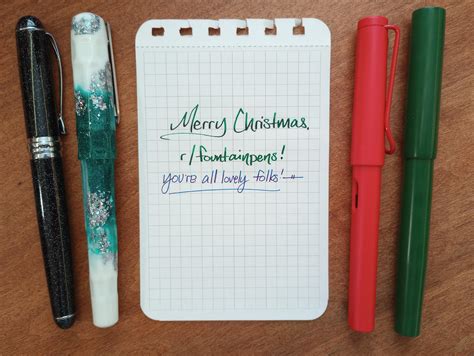 Merry Christmas,
r/fountainpens!
you're all lovely folks!